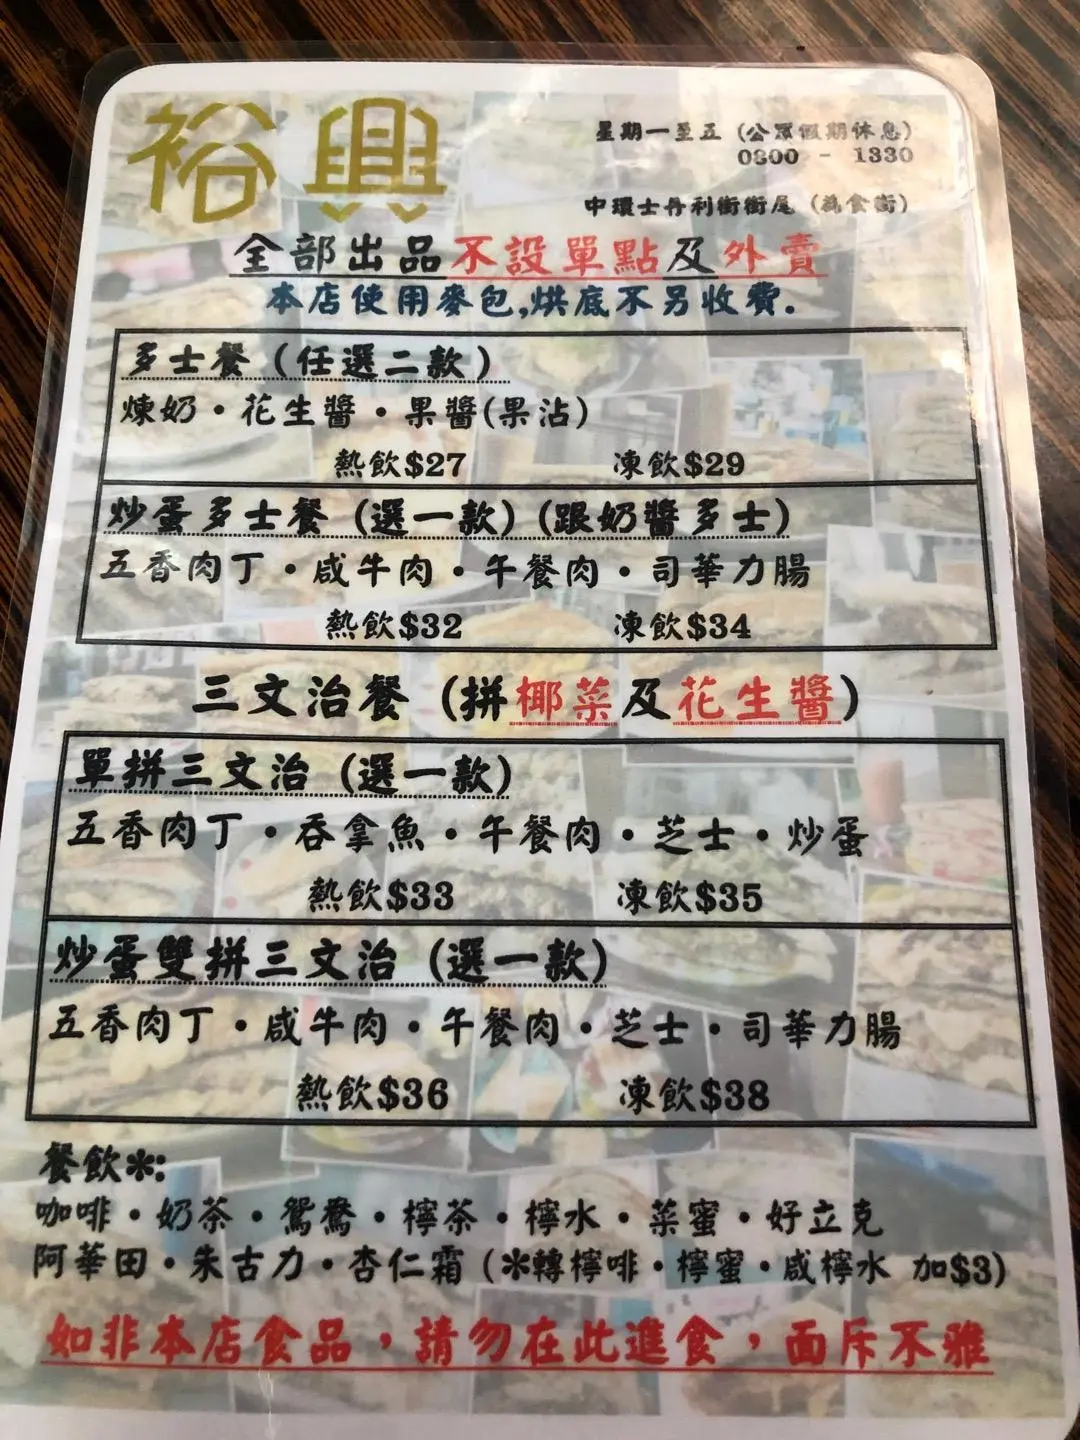 裕興
星期一至五 (公眾假期休息)
0800 - 1330
中環士丹利街街尾 (為食街)
全部出品不設單點及外賣
本店使用麥包,烘底不另收費.
多士餐 (任選二款)
煉奶•花生醬•果醬(果沾)
熱飲$27 凍飲$29
炒蛋多士餐 (選一款) (跟奶醬多士)
五香肉丁•咸牛肉•午餐肉•司華力腸
熱飲$32 凍飲$34
三文治餐 (拼椰菜及花生醬)
單拼三文治 (選一款)
五香肉丁•吞拿魚•午餐肉•芝士•炒蛋
熱飲$33 凍飲$35
炒蛋雙拼三文治 (選一款)
五香肉丁•咸牛肉•午餐肉•芝士•司華力腸
熱飲$36 凍飲$38
餐飲*:
咖啡•奶茶•鴛鴦•檸茶•檸水•菜蜜•好立克
阿華田•朱古力•杏仁霜 (*轉檸啡•檸蜜•咸檸水 加$3)
如非本店食品，請勿在此進食，面斥不雅